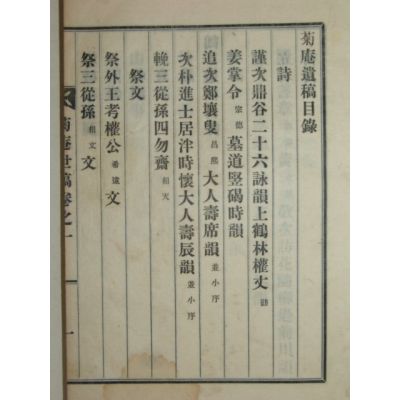 菊庵遺稿目錄
詩
謹次鼎谷二十六詠韻上鶴林權丈
姜掌令宗德墓道竪碣時韻
追次鄭壤叟昌熙大人壽席韻並小序
次朴進士居泮時懷大人壽辰韻並小序
輓三從孫四勿齋相天
祭文
祭外王考權公希遠文
祭三從孫相文文
菊庵世稿卷之一
一